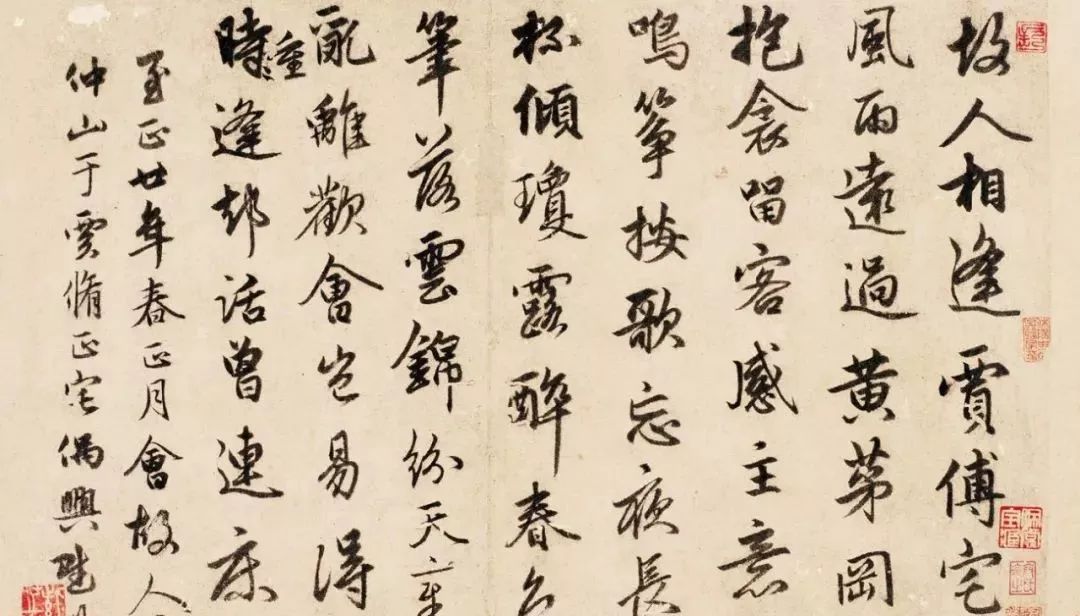 故人相逢賈傅宅
風雨遠過黃茅岡
抱衾畱客感主意
鳴箏按歌忘夜長
杯傾瓊露醉春
筆落雲錦紛天
亂離歡會豈易得
時重逢却話曾連床
至正廿年春正月會故人
仲山于賈脩正宅偶興